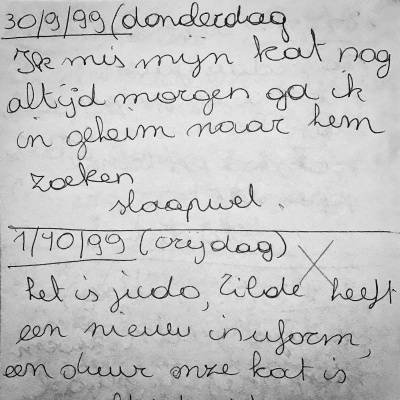 30/9/99 (donderdag
Ik mis mijn kat nog
altijd morgen ga ik
in geheim naar hem
zoeken
slaapwel.
1/10/99 (vrijdag)
het is judo, Tilde heeft
een nieuw inuform,
een duur onze kat is